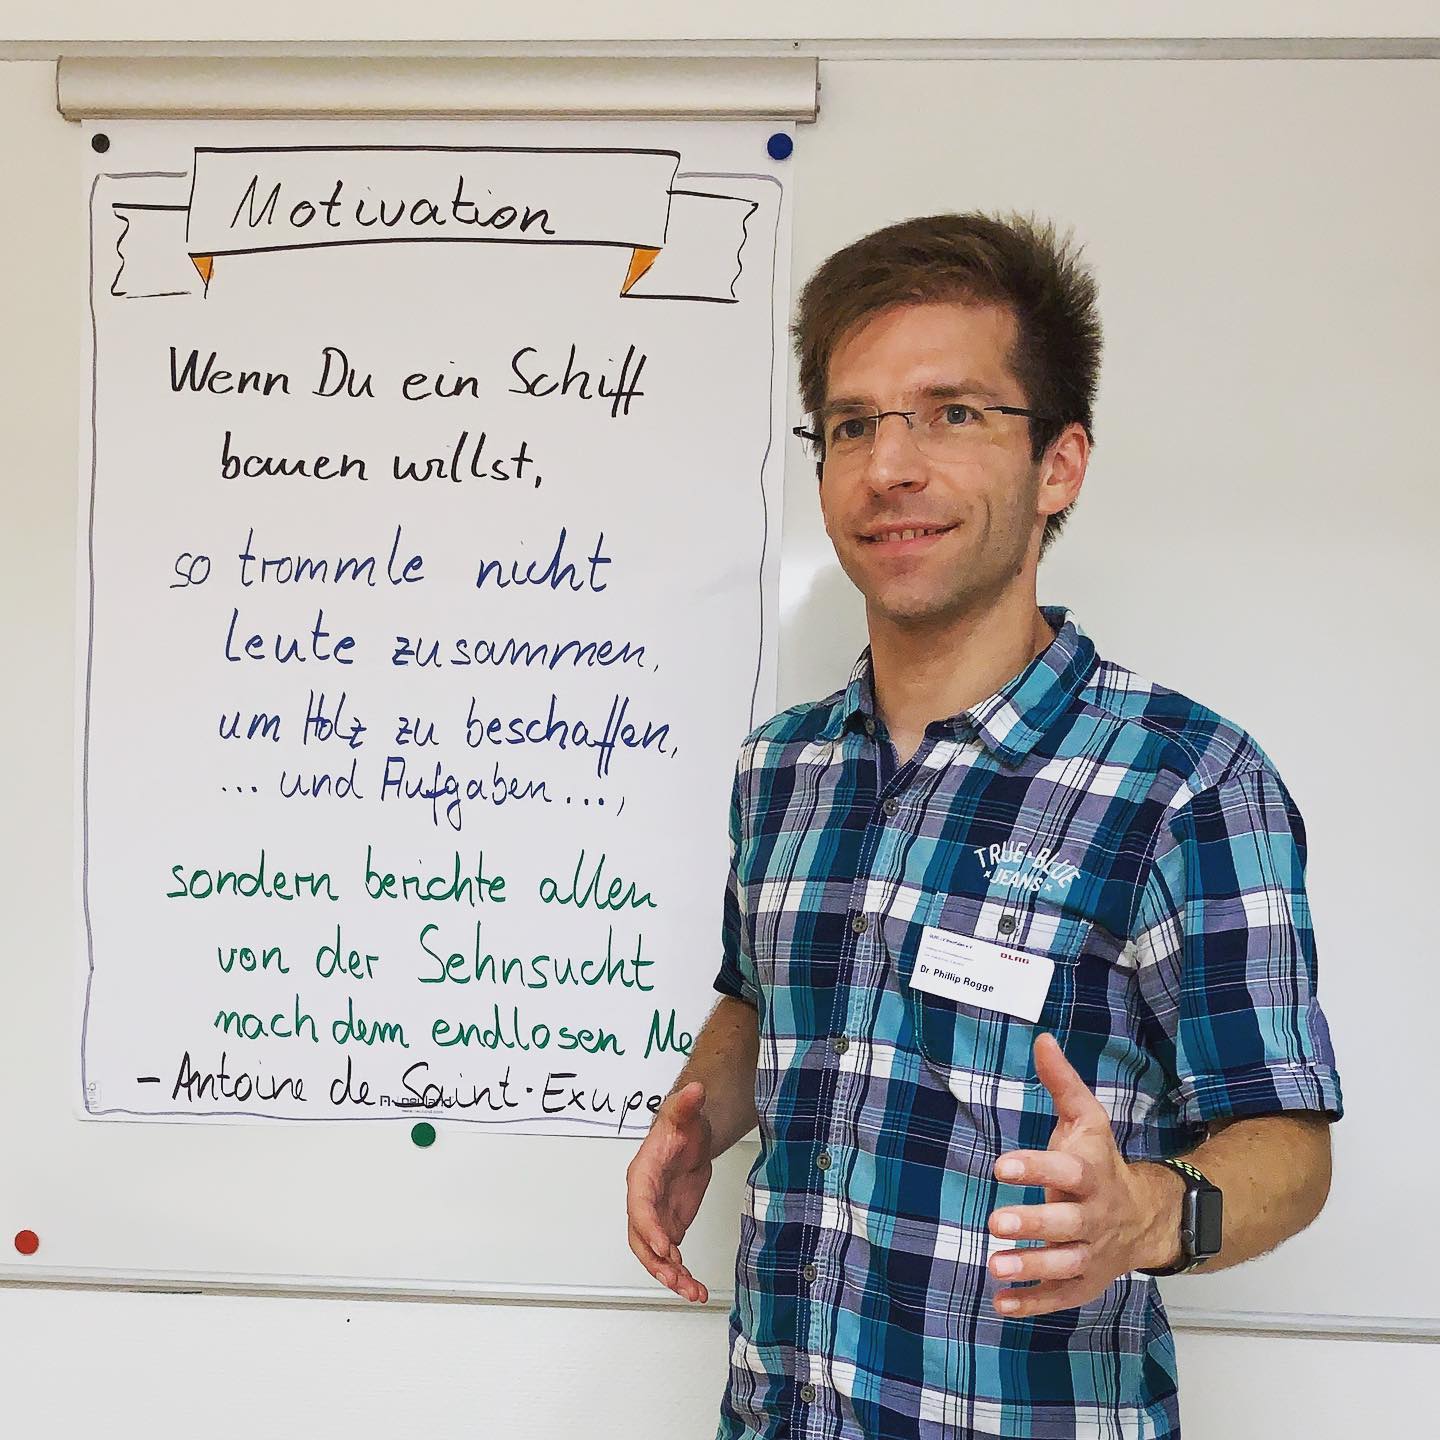 Motivation
Wenn Du ein Schiff
bauen willst,
so trommle nicht
Leute zusammen,
um Holz zu beschaffen,
... und Aufgaben...,
sondern berichte allen
von der Sehnsucht
nach dem endlosen Me
- Antoine de Saint-Exupe
neuland
TRUE-BLUE
JEANS
DLRG
Dr. Phillip Rogge